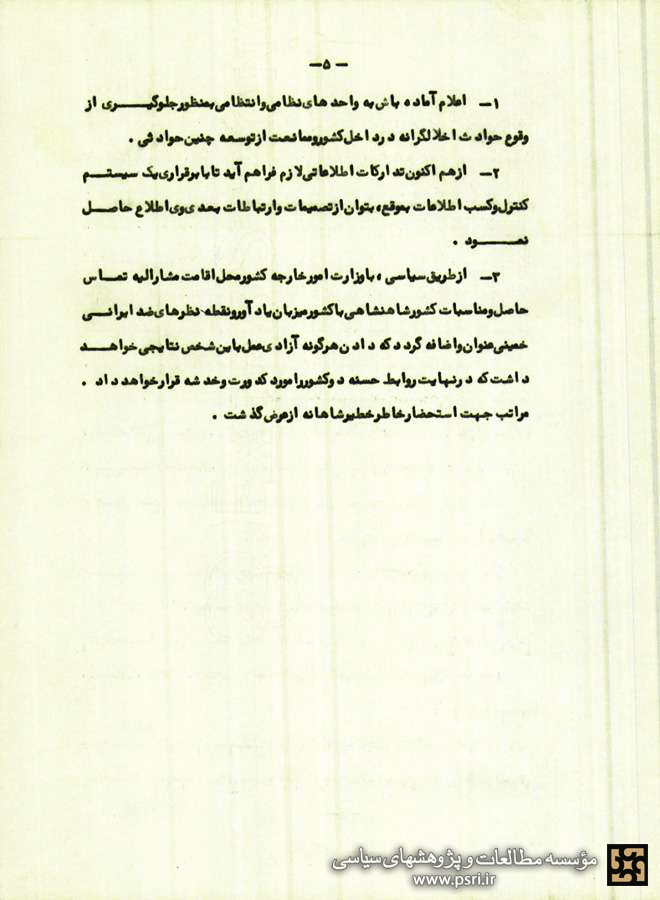 — ۵ —
۱— اعلام آماده باش به واحد های نظامی و انتظامی بمنظور جلوگیری از
وقوع حوادث اخلالگرانه در داخل کشور و ممانعت از توسعه چنین حوادثی .
۲— از هم اکنون تدارکات اطلاعاتی لازم فراهم آید تا با برقراری یک سیستم
کنترل و کسب اطلاعات بموقع ، بتوان از تصمیمات و ارتباطات بعدی وی اطلاع حاصل
نمود .
۳— از طریق سیاسی ، با وزارت امور خارجه کشور محل اقامت مشارالیه تماس
حاصل و مناسبات کشور شاهنشاهی با کشور میزبان یاد آور و نقطه نظرهای ضد ایرانی
خمینی عنوان و اضافه گردد که دادن هرگونه آزادی عمل باین شخص نتایجی خواهد
داشت که در نهایت روابط حسنه دو کشور را مورد کدورت و خدشه قرار خواهد داد .
مراتب جهت استحضار خاطر خطیر شاهانه از عرض گذشت .
مؤسسه مطالعات و پژوهشهای سیاسی
www.psri.ir